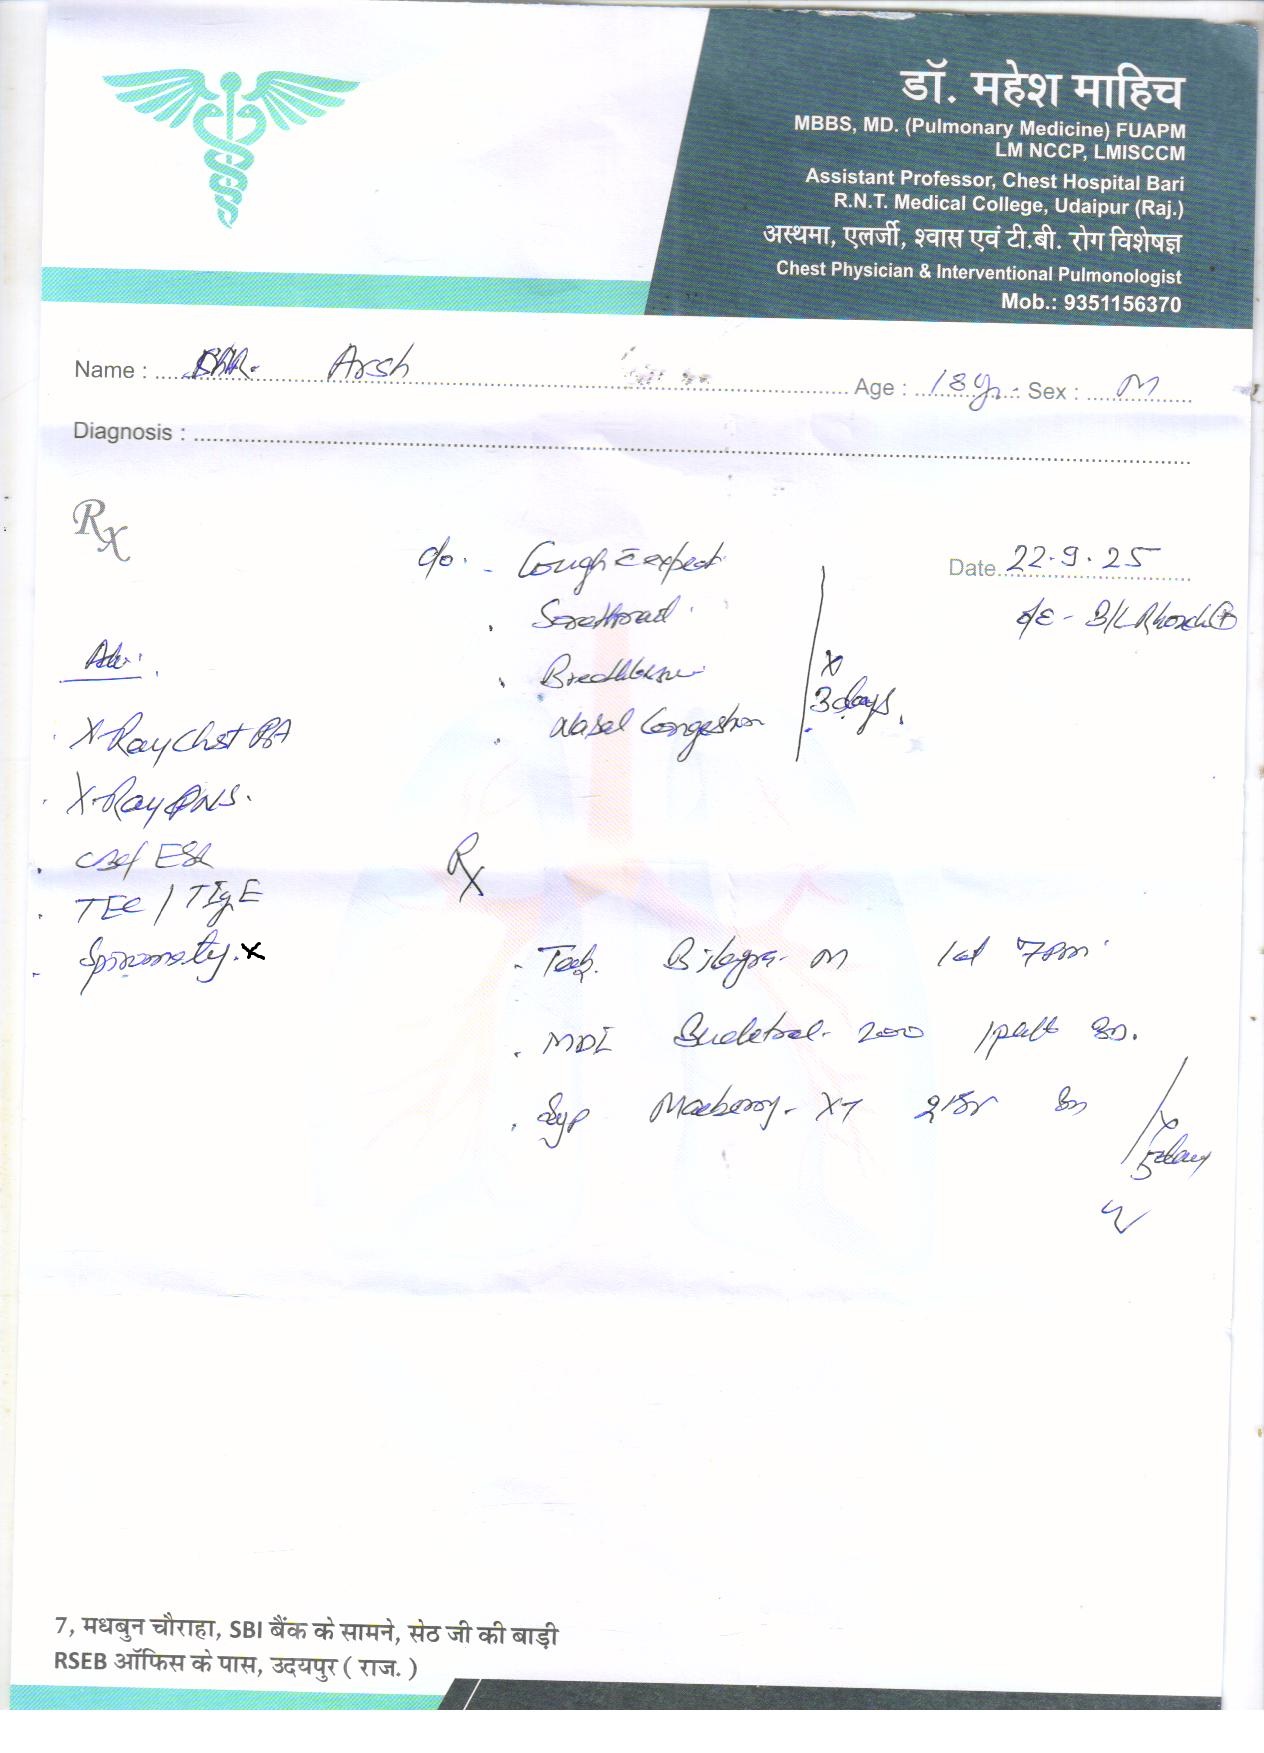 डॉ. महेश माहिच
MBBS, MD. (Pulmonary Medicine) FUAPM
LM NCCP, LMISCCM
Assistant Professor, Chest Hospital Bari
R.N.T. Medical College, Udaipur (Raj.)
अस्थमा, एलर्जी, श्वास एवं टी.बी. रोग विशेषज्ञ
Chest Physician & Interventional Pulmonologist
Mob.: 9351156370
Name : Arsh Age : 18 Yr. Sex : M
Diagnosis :
Rx
Date 22.9.25
c/o. - Cough c expect.
. Sorethroat
. Breathless
. Nasal Congestion
x 3 days.
o/E - B/L Rhonchi +
Adv.
. X-Ray Chest PA
. X-Ray PNS.
. CBC/ ESR
. TEC / TIgE
- Spirometry. x
Rx
. Tab. Bilagra-M 1at 7pm
. MDI Budetrol-200 1puff
. Syp Macberry-XT
x 5 days
7, मधबुन चौराहा, SBI बैंक के सामने, सेठ जी की बाड़ी
RSEB ऑफिस के पास, उदयपुर ( राज. )